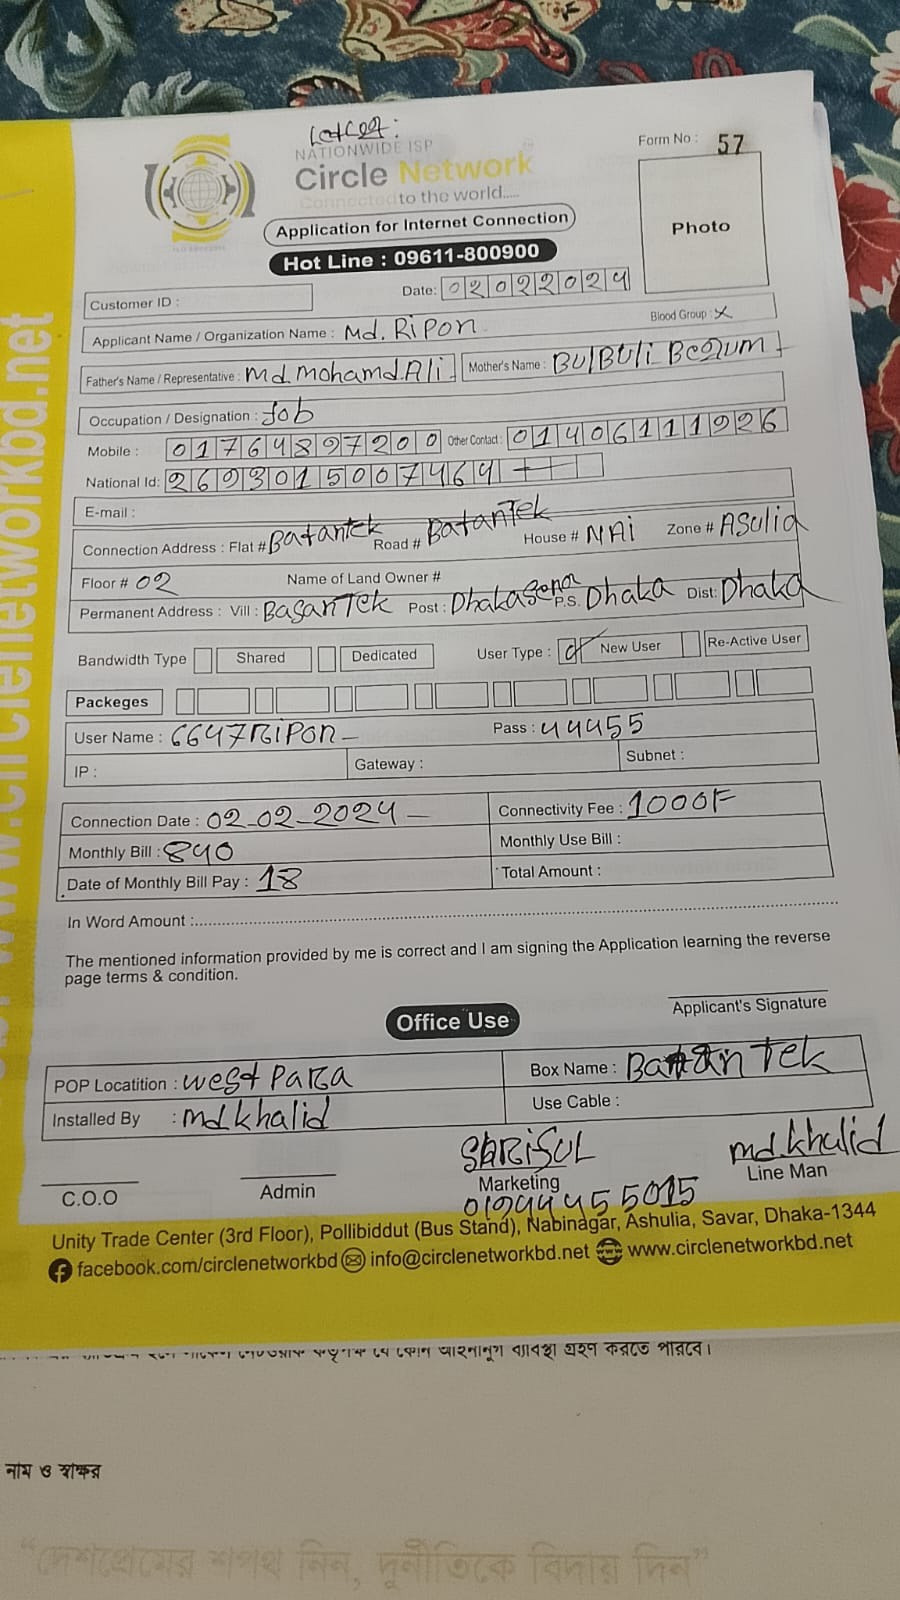 NATIONWIDE ISP
Circle Network
Connected to the world.....
Form No : 57
Photo
Application for Internet Connection
Hot Line : 09611-800900
Customer ID :
Date: 02022024
Applicant Name / Organization Name : Md. Ripon
Blood Group : X
Father's Name / Representative : Md. Mohamd. Ali
Mother's Name : BulBuli Begum
Occupation / Designation : Job
Mobile : 01764897200 Other Contact : 01406111926
National Id: 2693015007464
E-mail :
Connection Address : Flat # Batantek Road # BatanTek House # NAi Zone # ASulia
Floor # 02 Name of Land Owner #
Permanent Address : Vill : BasanTek Post : Dhaka Sena P.S. Dhaka Dist: Dhaka
Bandwidth Type Shared Dedicated User Type : New User Re-Active User
Packeges
User Name : 6647Ripon Pass : 44455
IP : Gateway : Subnet :
Connection Date : 02-02-2024 Connectivity Fee : 1000F
Monthly Bill : 840 Monthly Use Bill :
Date of Monthly Bill Pay : 18 Total Amount :
In Word Amount :
The mentioned information provided by me is correct and I am signing the Application learning the reverse
page terms & condition.
Applicant's Signature
Office Use
POP Locatition : West Para Box Name : BatanTek
Installed By : md khalid Use Cable :
SARiSUL md. khalid
C.O.O Admin Marketing Line Man
01944455015
Unity Trade Center (3rd Floor), Pollibiddut (Bus Stand), Nabinagar, Ashulia, Savar, Dhaka-1344
facebook.com/circlenetworkbd info@circlenetworkbd.net www.circlenetworkbd.net
www.circlenetworkbd.net
ব্যবস্থা গ্রহণ করতে পারবে।
নাম ও স্বাক্ষর
“দেশপ্রেমের শপথ নিন, দুর্নীতিকে বিদায় দিন”